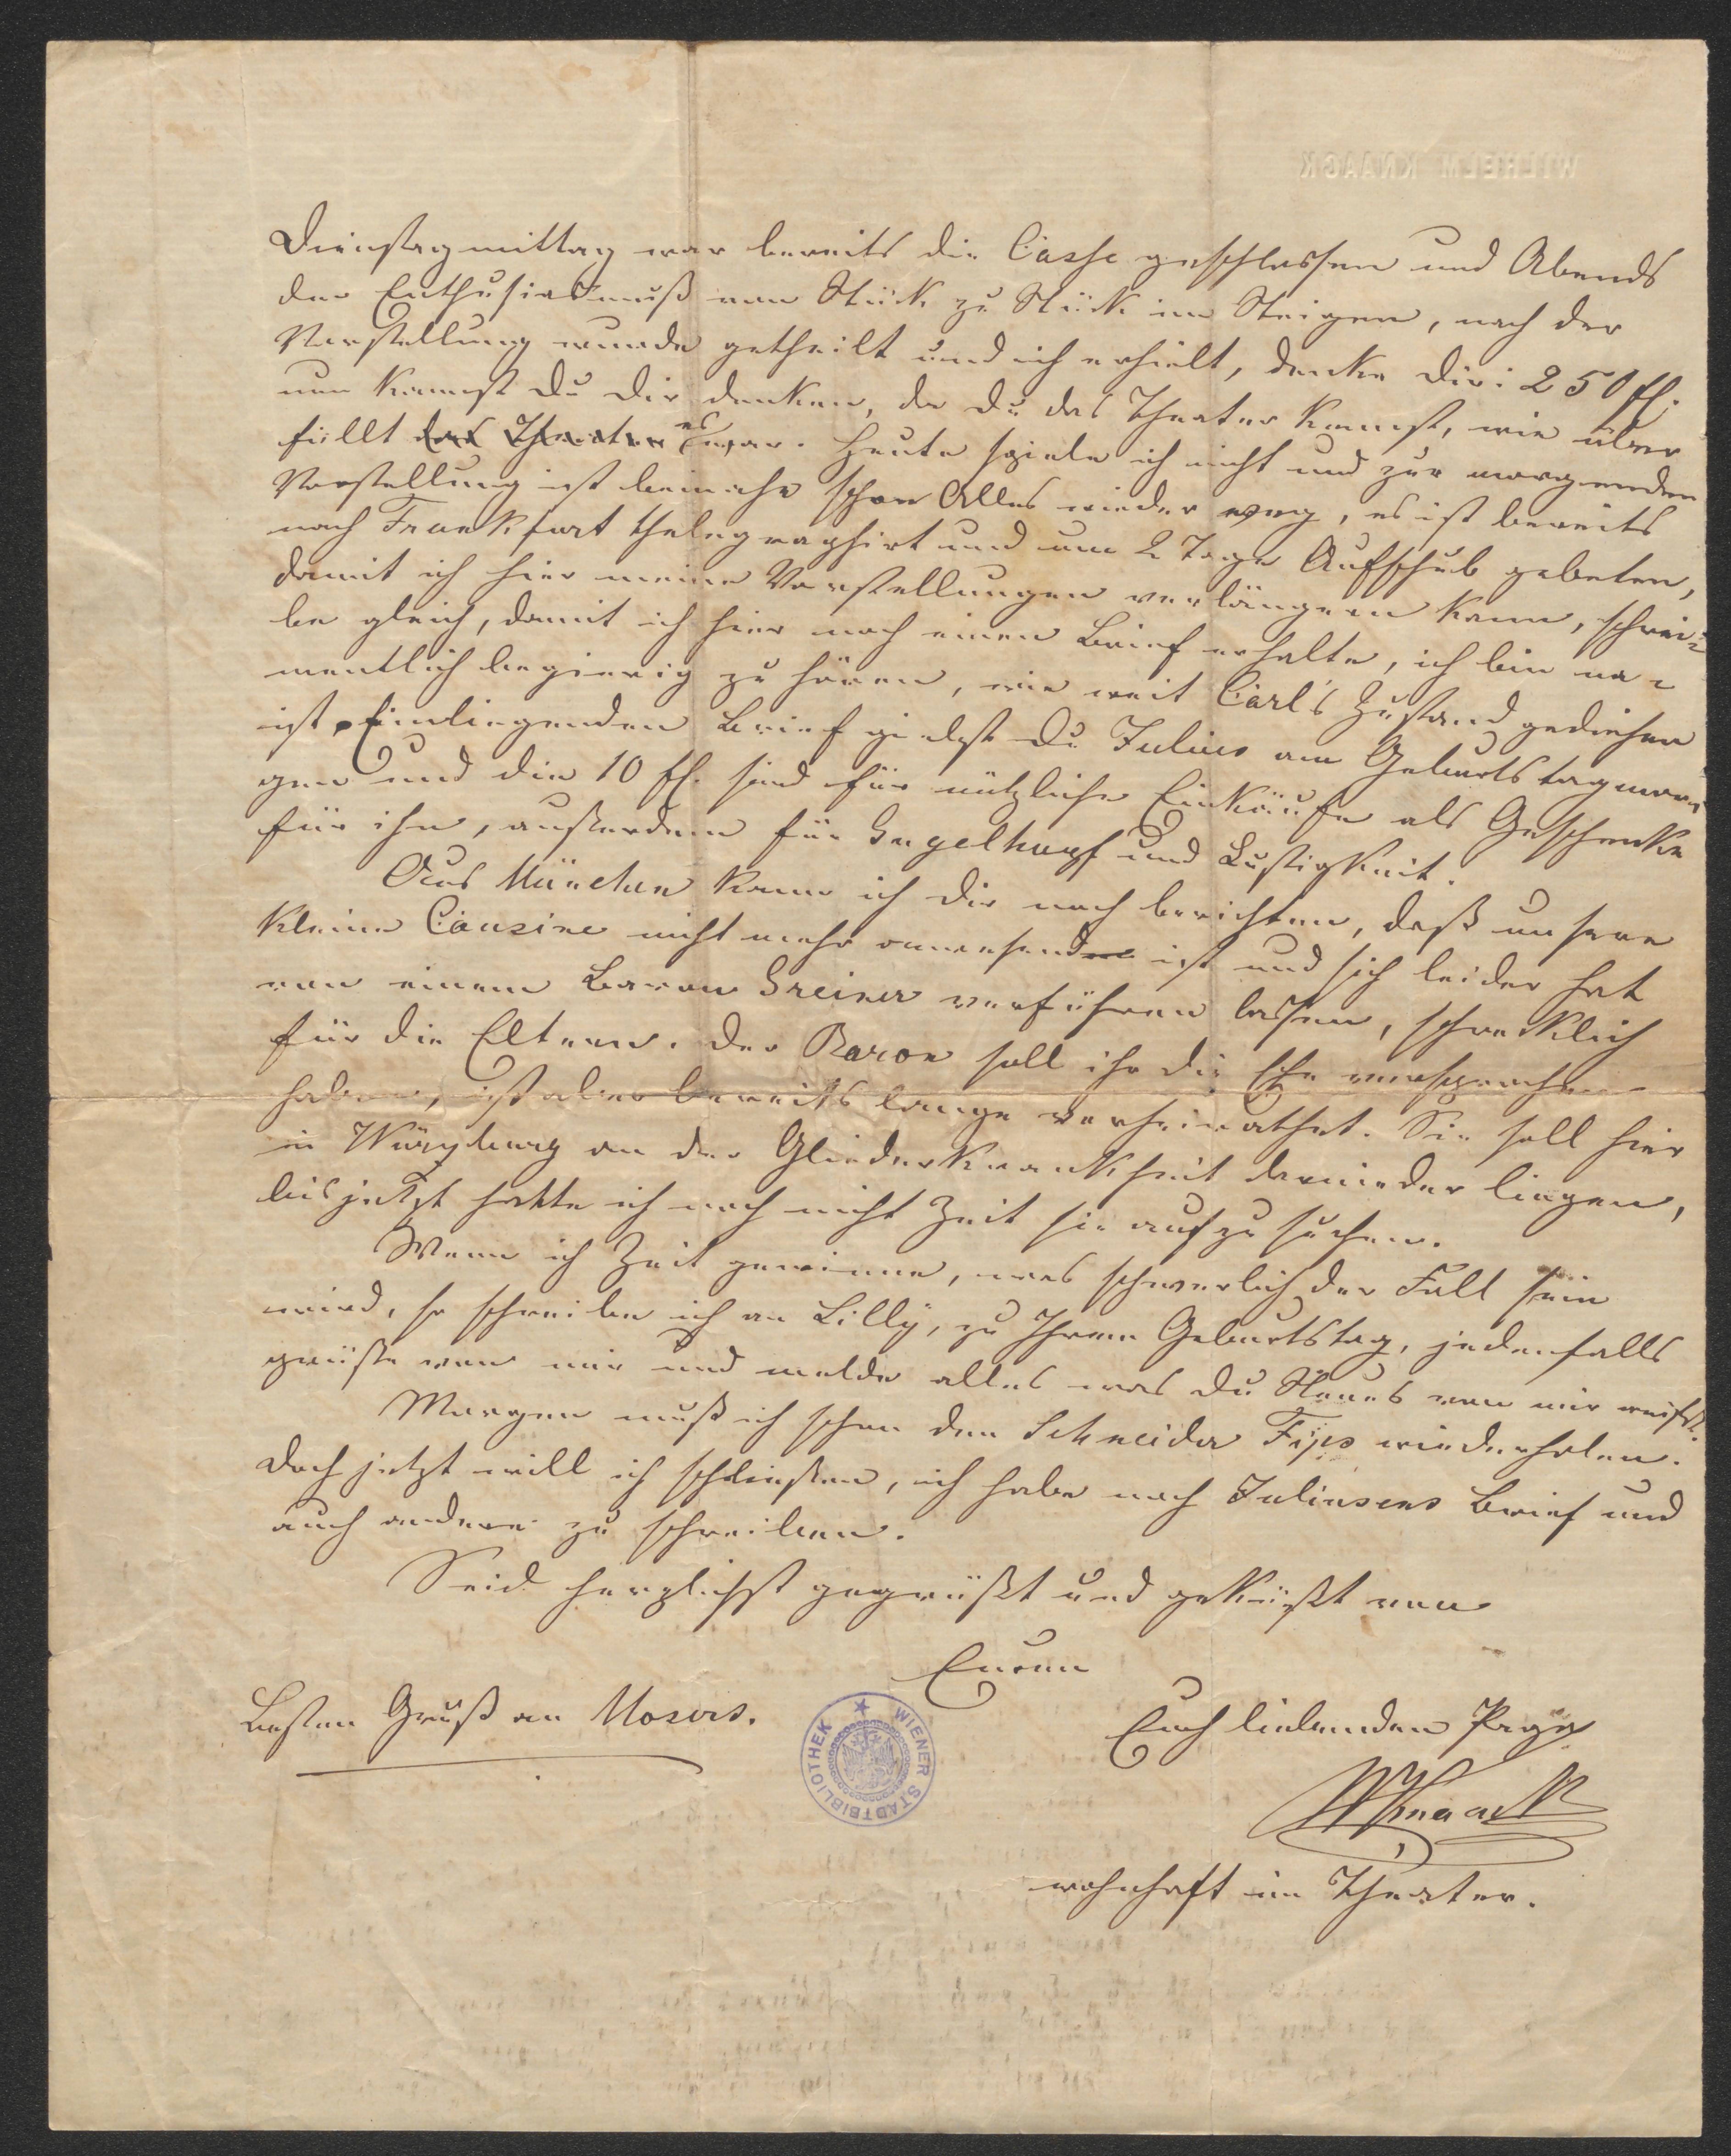 WILHELM KNAACK
Dienstagmittag war bereits die Casse geschlossen und Abends
der Enthusiasmuß von Stück zu Stück im Steigen, nach der
Vorstellung wurde getheilt und ich erhielt, denke Dir: 250 fl.
nun kannst Du Dir denken, da Du das Theater kennst, wie über
füllt das Theater es war. Heute spiele ich nicht und zur morgenden
Vorstellung ist beinahe schon Alles wieder weg, es ist bereits
nach Frankfurt thelegraphirt und um 2 Tage Aufschub gebeten,
damit ich hier meine Vorstellungen verlängern kann, schrei-
be gleich, damit ich hier noch einen Brief erhalte, ich bin na-
mentlich begierig zu hören, wie weit Carl's Zustand gediehen
ist. Einliegenden Brief giebst Du Julius am Geburtstagmor-
gen und die 10 fl. sind für nützliche Einkäufe als Geschenke
für ihn, außerdem für Gugelhupf und Lustigkeit.
Aus München kann ich Dir noch berichten, daß unsere
kleine Cousine nicht mehr anwesend ist und sich leider hat
von einem Baron Greiner verführen lassen, schrecklich
für die Eltern. Der Baron soll ihr die Ehe versprochen
haben, ist aber bereits lange verheirathet. Sie soll hier
in Würzburg an der Gliederkrankheit darnieder liegen,
bis jetzt hatte ich noch nicht Zeit sie aufzusuchen.
Wenn ich Zeit gewinne, was schwerlich der Fall sein
wird, so schreibe ich an Lilly, zu Ihrem Geburtstag, jedenfalls
grüße von mir und melde alles was Du Neues von mir weißt.
Morgen muß ich schon den Schneider Fips wiederholen.
Doch jetzt will ich schließen, ich habe noch Juliusens Brief und
auch andere zu schreiben.
Seid herzlichst gegrüßt und geküßt von
Eurem
Euch liebenden Papa
WKnaack
wohnhaft im Theater.
Besten Gruß an Mosers.
WIENER STADTBIBLIOTHEK